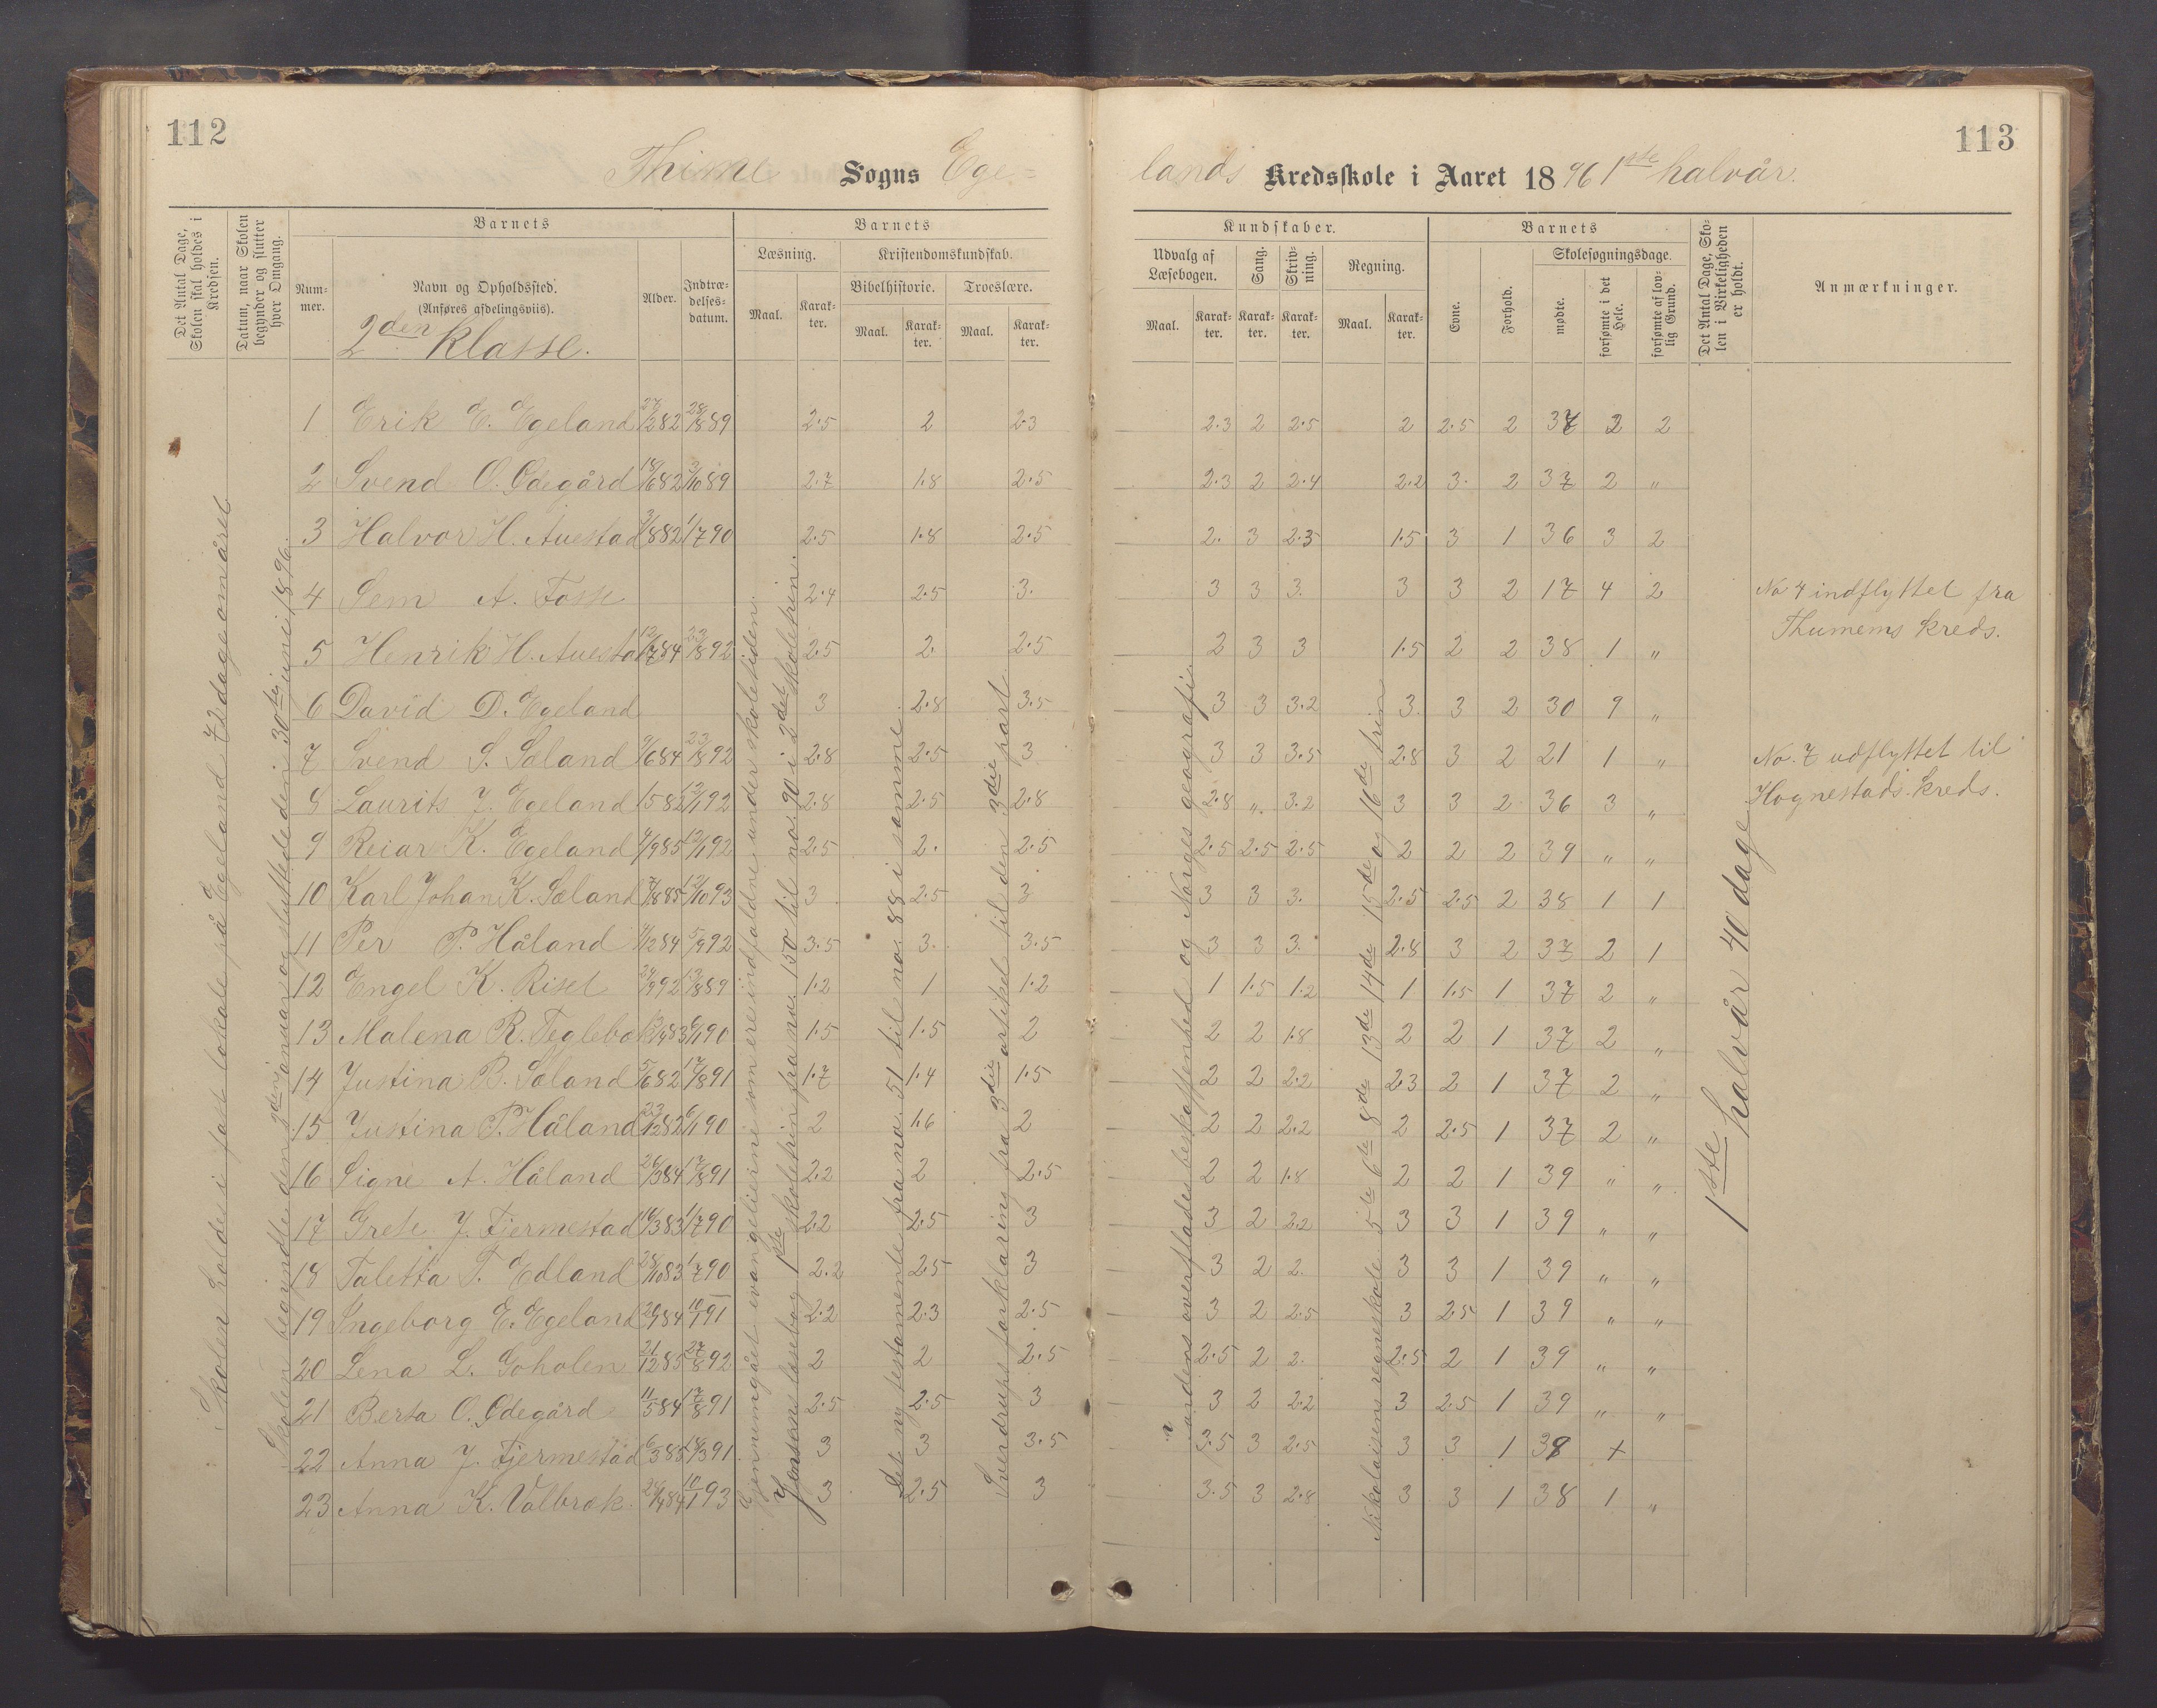 112
113
Thime Sogns Ege-
lands Kredsskole i Aaret 1896 1ste halvår.
Det Antal Dage, Skolen skal holdes i Kredsen.
Datum, naar Skolen begynder og slutter hver Omgang.
Barnets
Nummer.
Navn og Opholdssted.
(Anføres afdelingsviis).
2den klasse.
Alder.
Indtrædelsesdatum.
Barnets
Læsning.
Maal.
Karakter.
Kristendomskundskab.
Bibelhistorie.
Maal.
Karakter.
Troeslære.
Maal.
Karakter.
Kundskaber.
Udvalg af Læsebogen.
Maal.
Karakter.
Sang.
Karakter.
Skrivning.
Karakter.
Regning.
Maal.
Karakter.
Barnets
Evne.
Forhold.
Skolesøgningsdage.
mødte.
forsømte i det Hele.
forsømte af lovlig Grund.
Det Antal Dage, Skolen i Virkeligheden er holdt.
Anmærkninger.
1 Erik E. Egeland 27/2 82 28/8 89 2.5 2 2.3 2.3 2 2.5 2 2.5 2 37 3 2
2 Svend O. Ødegård 18/6 82 3/10 89 2.7 1.8 2.5 2.3 2 2.4 2.2 3. 2 37 2 "
3 Halvor H. Auestad 3/8 82 1/7 90 2.5 1.8 2.5 2. 3 2.3 1.5 3 1 36 3 2
4 Sem A. Fosse 2.4 2.5 3. 3 3 3. 3 3 2 17 4 2 No 4 indflyttet fra
Thumems kreds.
5 Henrik H. Auestad 12/7 84 23/8 92 2.5 2. 2.5 2 3 3 1.5 2 2 38 1 "
6 David D. Egeland 3 2.8 3.5 3 3 3.2 3. 3 2 30 9 "
7 Svend S. Sæland 9/6 84 23/8 92 2.8 2.5 3 3 3 3.5 2.8 3 2 21 1 " No. 7 udflyttet til
Hognestads kreds.
8 Laurits J. Egeland 1/5 82 12/1 92 2.8 2.5 2.8 2.8 " 3.2 3 3 2 36 3 "
9 Reiar K. Egeland 4/9 85 12/1 92 2.5 2. 2.5 2.5 2.5 2.5 2 2 2 39 " "
10 Karl Johan K. Sæland 7/8 85 12/10 93 3 2.5 3 3 3 3. 2.5 2.5 2 38 1 1
11 Per P. Håland 4/12 84 5/9 92 3.5 3. 3.5 3 3 3. 2.8 3 2 37 2 1
12 Engel K. Riset 24/9 92 13/8 89 1.2 1 1.2 1 1.5 1.2 1 1.5 1 37 2 "
13 Malena R. Teglebak 83 6/1 90 1.5 1.5 2 2 2 1.8 2 2 1 37 2 "
14 Justina B. Sæland 5/6 82 17/8 91 1.7 1.4 1.5 2 2 2.2 2.3 2 1 37 2 "
15 Justina P. Håland 23/12 82 6/1 90 2 1.6 2 2 2 2.2 2 2.5 1 37 2 "
16 Signe A. Håland 26/3 84 17/8 91 2.2 2 2.5 2 2 1.8 2 2 1 39 " "
17 Grete J. Fjermestad 16/3 83 1/7 90 2.2 2.5 3 3 2 2.2 3 3 1 39 " "
18 Taletta T. Edland 28/10 83 1/7 90 2.2 2.5 3 3 2 2. 3 3 1 39 " "
19 Ingeborg E. Egeland 2/9 84 10/1 91 2.2 2.3 2.5 3 2 2.5 3 2.5 1 39 " "
20 Lena L. Goholen 21/12 85 27/8 92 2 2 2.5 2.5 2 2. 2.5 2 1 39 " "
21 Berta O. Ødegård 11/5 84 17/8 91 2.5 2.5 3 3 2 2.2 3 2.5 1 39 " "
22 Anna J. Fjermestad 6/3 85 18/3 91 3 3 3.5 3.5 3 2.5 3 3 1 38 +
23 Anna K. Valbrok. 24/4 84 10/1 93 3 2.5 3 3.5 3 2.8 3 3 1 38 1 "
Skolen holdes i fast lokale på Egeland 72 dage om året
Skolen begyndte den 3den januar og sluttede den 30te juni 1896.
Gjennemgået evangelierne som ere indfaldne under skoletiden.
Jensens læsebog 1ste skoletrin fra no. 150 til no. 90 i 2det skoletrin.
Det ny testamente fra no. 51 til no. 88 i samme
Sverdrups forklaring fra 3die artikel til den 3die part
Jordens overflades beskaffenhed og Norges geografi
Nikolaisens regneskole 5te 6te 8de 13de 14de 15de og 16de trin
1ste halvår 40 dage